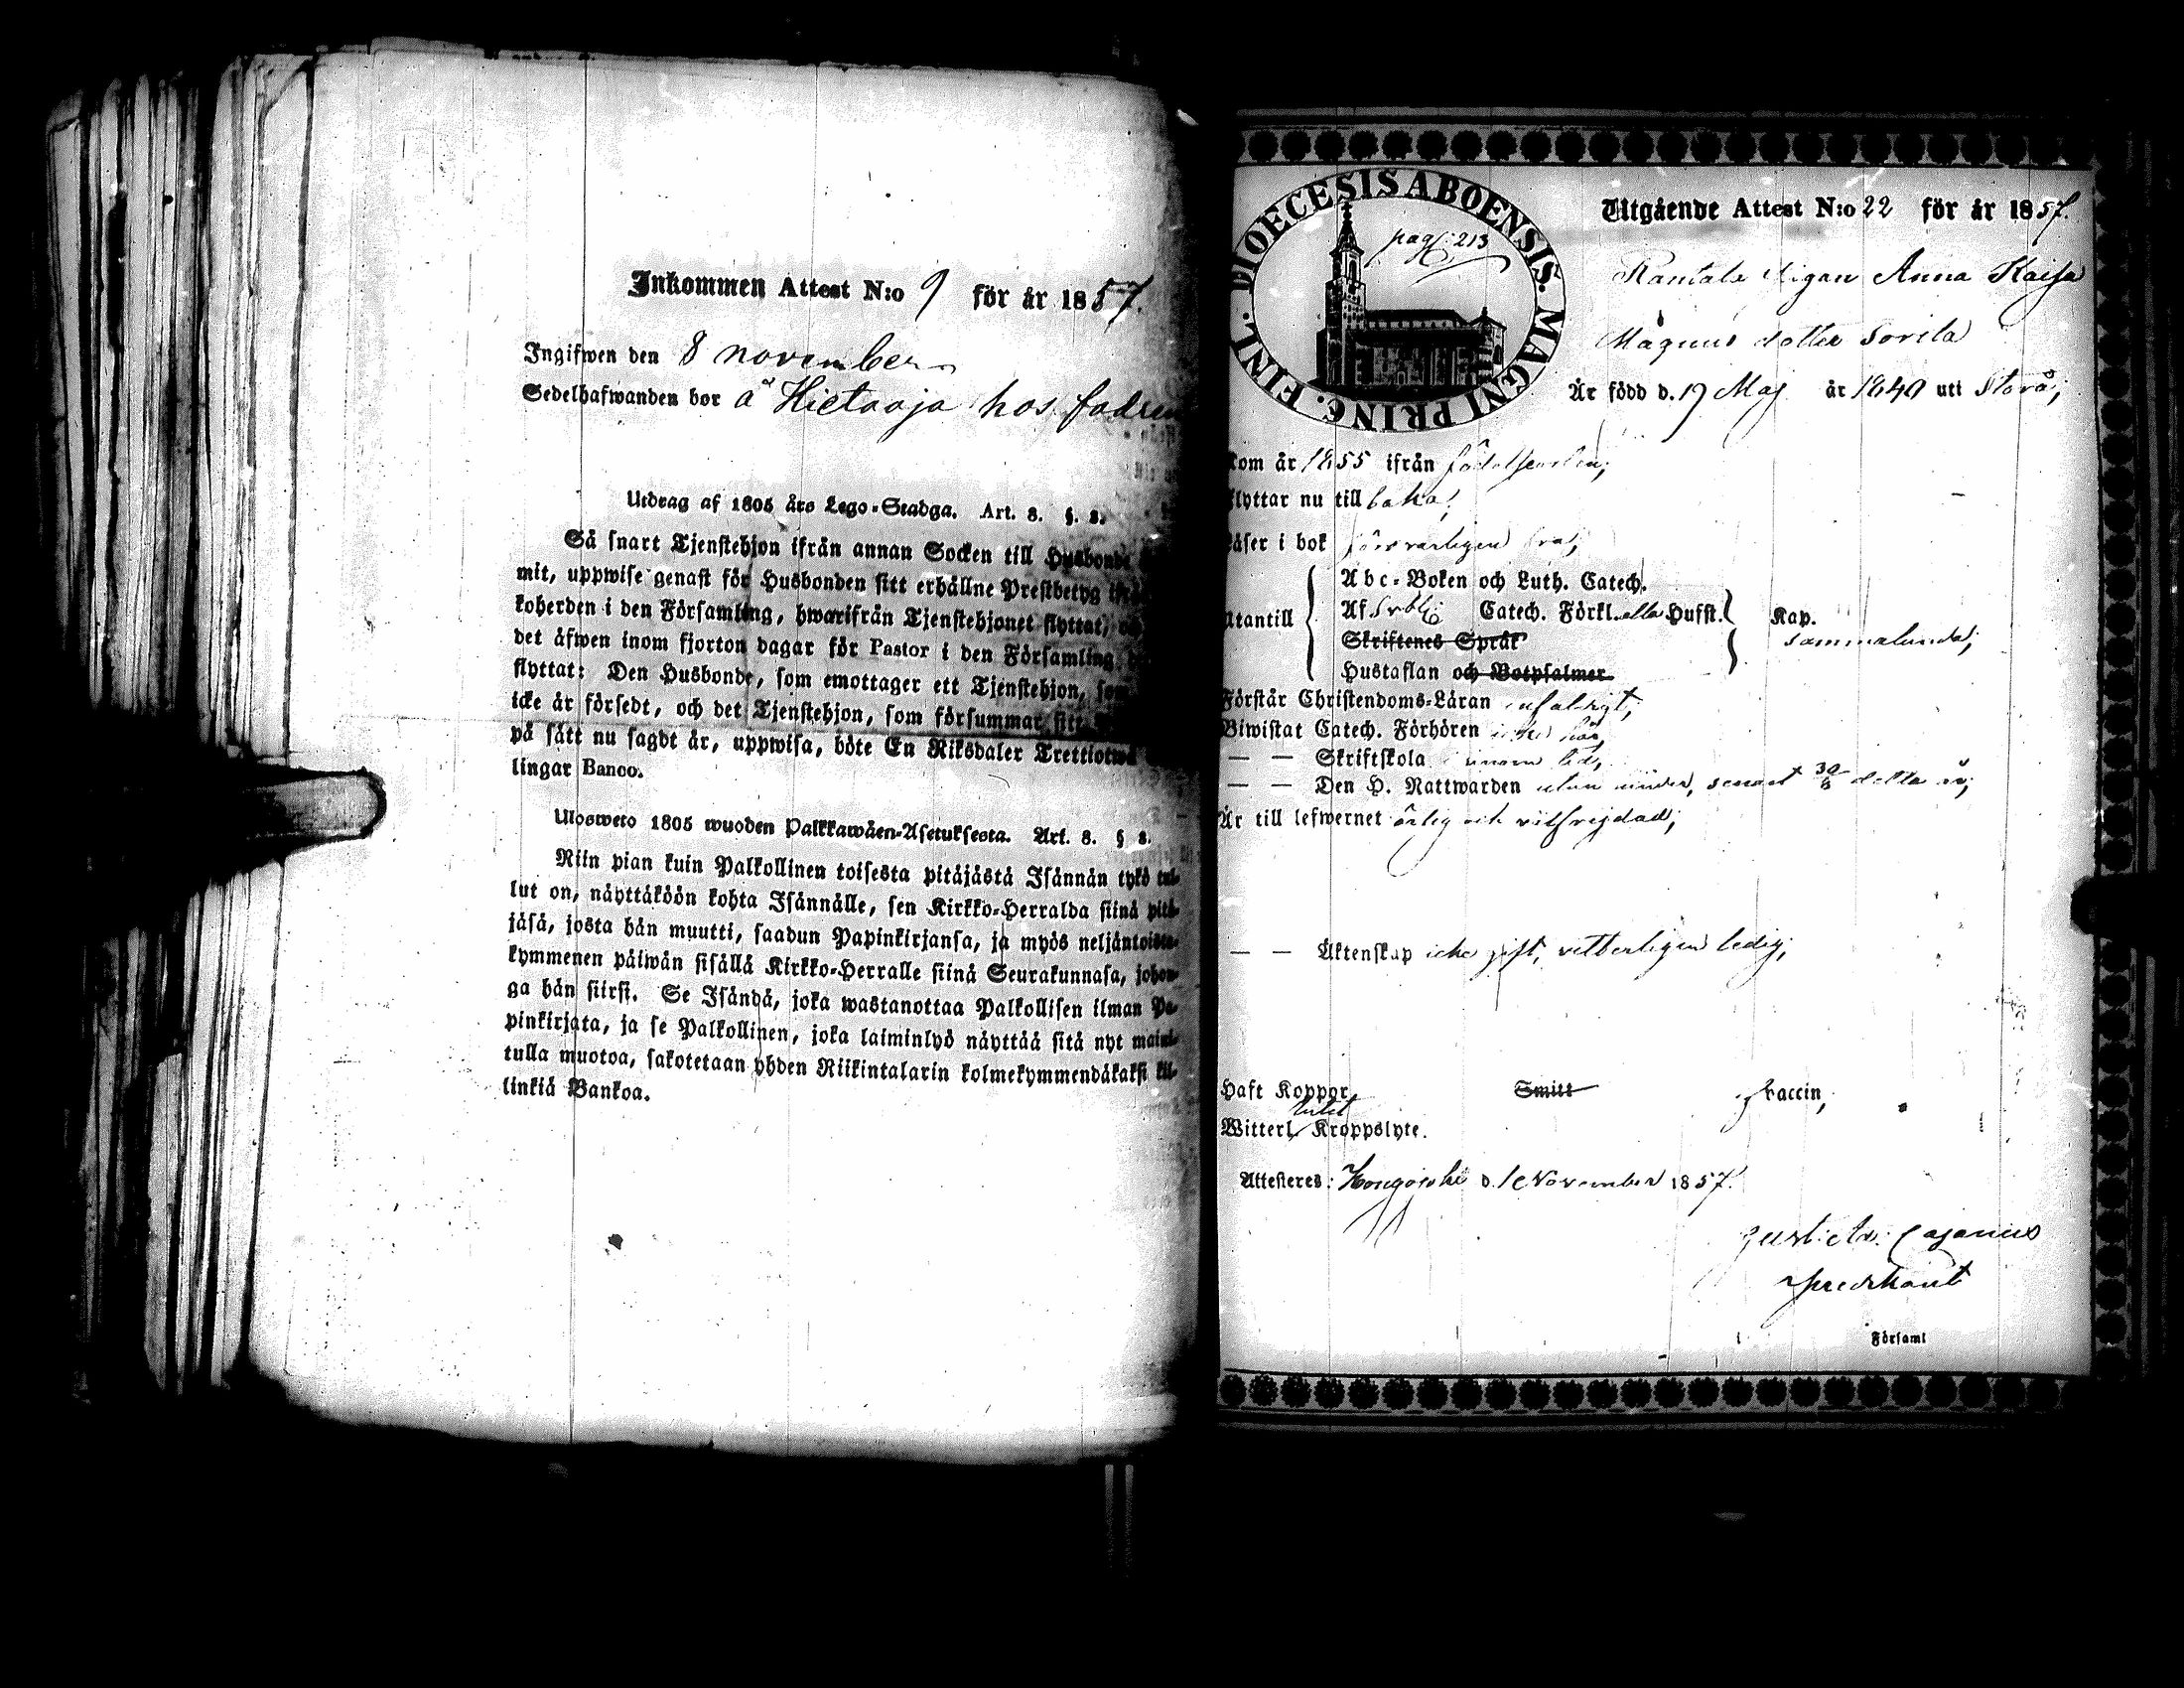 Inkommen Attest N:o 9 för år 1857.
Ingifwen den 8 november
Sedelhafwanden bor å Hietaoja hos fadren
Utdrag af 1805 års Lego-Stadga. Art. 8. §. 8.
Så snart Tjenstehjon ifrån annan Socken till Husbonde
mit, uppwise genast för Husbonden sitt erhållne Prestbetyg
koherden i den Församling, hwarifrån Tjenstehjonet flyttat,
det äfwen inom fjorton dagar för Pastor i den Församling,
flyttat: Den Husbonde, som emottager ett Tjenstehjon, som
icke är försedt, och det Tjenstehjon, som försummar sitt
på sätt nu sagdt är, uppwisa, böte En Riksdaler Trettiotwå
lingar Banco.
Ulosweto 1805 wuoden Palkkawäen-Asetuksesta. Art. 8. § 8.
Niin pian kuin Palkollinen toisesta pitäjästä Isännän tykö tul-
lut on, näyttäköön kohta Isännälle, sen Kirkko-Herralda siinä pitä-
jäsä, josta hän muutti, saadun Papinkirjansa, ja myös neljäntoista-
kymmenen päiwän sisällä Kirkko-Herralle siinä Seurakunnasa, johon-
ga hän siirsi. Se Isändä, joka wastanottaa Palkollisen ilman Pa-
pinkirjata, ja se Palkollinen, joka laiminlyö näyttää sitä nyt maini-
tulla muotoa, sakotetaan yhden Riikintalarin kolmekymmendäkaksi kil-
linkiä Bankoa.
DIOECESIS ABOENSIS. MAGNI PRINC. FINL.
pag: 213
Utgående Attest N:o 22 för år 1857.
Rantala Pigan Anna Kaisa
Magnus dotter Sorila
Är född d. 19 Maj år 1840 uti Storå;
Kom år 1855 ifrån födelseorten;
flyttar nu till baka;
Läser i bok försvarligen bra;
Utantill
Abc-Boken och Luth. Catech.
Af Svbl: Catech. Förkl. alla Hufst. Kap.
sammalunda;
Skriftenes Språk
Hustaflan och Botpsalmer
Förstår Christendoms-Läran enfaldigt;
Biwistat Catech. Förhören
— — Skriftskola
— — Den H. Nattwarden utan hinder, senast 30/8 detta år;
Är till lefwernet ärlig och välfrejdad;
— — Äktenskap icke gift, vitterligen ledig;
Haft Koppor Smitt vaccin,
Witterl. Kroppslyte.
Attesteres: Hongojoki d. 1 November 1857.
Gust: Ad: Cajanus
Predikant
i Församl